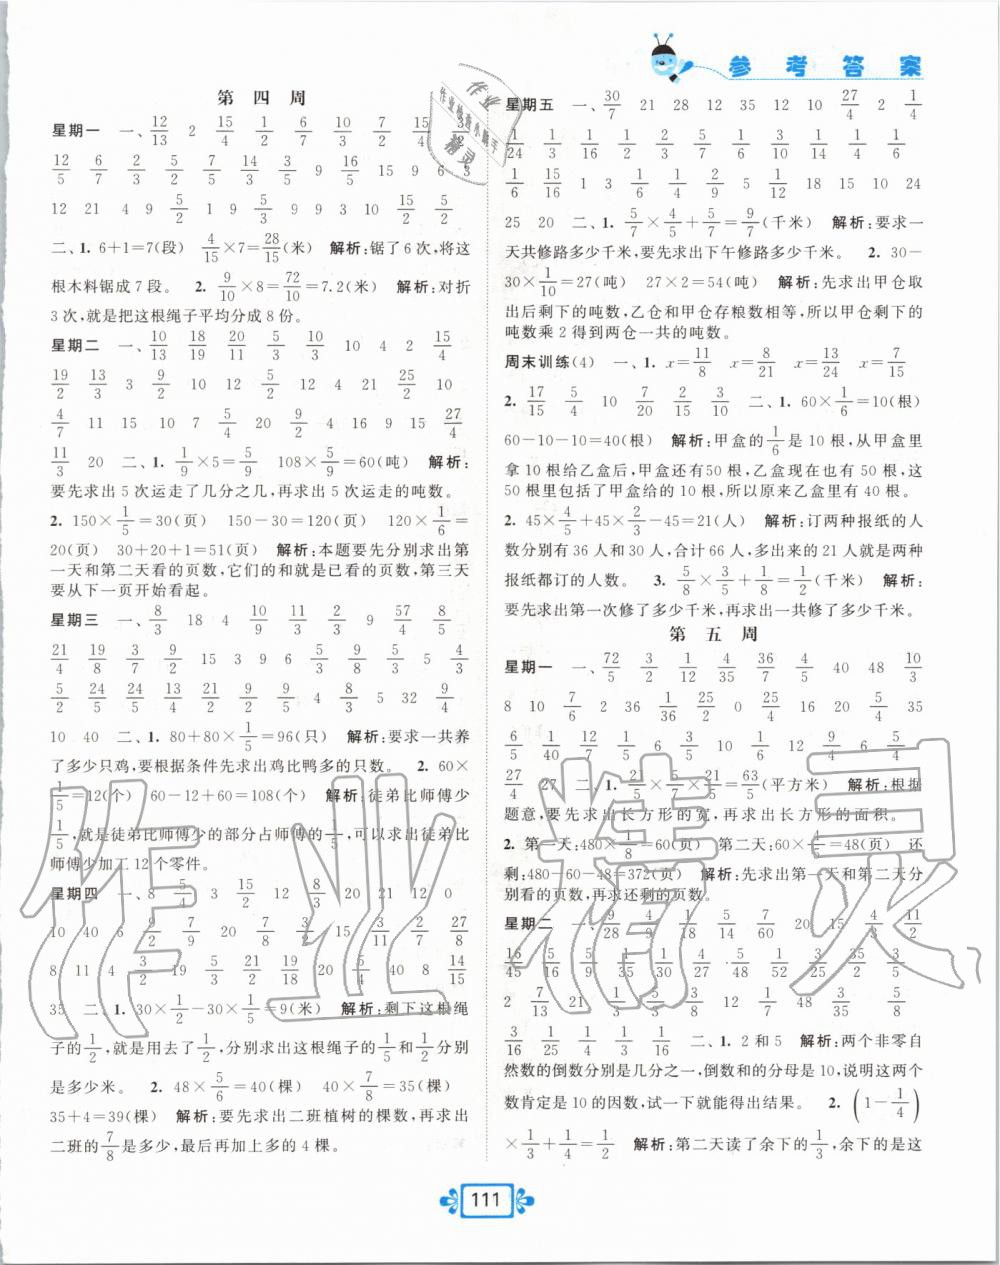 参考答案
第四周
星期一 一、12/13 2 15/4 1/2 6/7 10/3 15/4
12/5 6/7 6/5 2/5 7/2 14/5 3/5 9/10 15 9 6 3
12 21 4 9 5/2 1 9 5/3 9 9 3 10 15/2 5/2
二、1. 6+1=7(段) 4/15×7=28/15(米) 解析:锯了6次,将这
根木料锯成7段。 2. 9/10×8=72/10=7.2(米) 解析:对折
3次,就是把这根绳子平均分成8份。
星期二 一、10/13 18/19 20/11 5/3 10/3 10 4 2 15/4
19/2 13/3 3 9/2 10 12 5/2 12 4 21 25/2 10
4/7 11 15 10 7 5/4 20 9/2 4 16 9 15 27/4
11/3 20 二、1. 1/9×5=5/9 108×5/9=60(吨) 解析:
要先求出5次运走了几分之几,再求出5次运走的吨数。
2. 150×1/5=30(页) 150-30=120(页) 120×1/6=
20(页) 30+20+1=51(页) 解析:本题要先分别求出第
一天和第二天看的页数,它们的和就是已看的页数,第三天
要从下一页开始看起。
星期三 一、8/3 18 4 10/9 11/3 2/3 9 57/4 8/5
21/4 19/8 3/7 9/2 15 3 9 6 5/3 9/8 5/3 5 4/3
5/2 24/5 24/5 13/4 21/2 9/2 9/5 4 8/3 5 32 9/4
10 40 二、1. 80+80×1/5=96(只) 解析:要求一共养
了多少只鸡,要根据条件先求出鸡比鸭多的只数。 2. 60×
1/5=12(个) 60-12+60=108(个) 解析:徒弟比师傅少
1/5,就是徒弟比师傅少的部分占师傅的1/5,可以求出徒弟比
师傅少加工12个零件。
星期四 一、8 5/4 3 12 8/3 20 21 12 0
10 40 6 9/2 7/9 20 7/8 7/2 3/2 15 2/3 27/8
8 11 4 3/2 19 5/3 20 15/2 40 8 14/15
35 二、1. 30×1/2-30×1/5=9(米) 解析:剩下这根绳
子的1/2,就是用去了1/2,分别求出这根绳子的1/5和1/2分别
是多少米。 2. 48×5/6=40(棵) 40×7/8=35(棵)
35+4=39(棵) 解析:要先求出二班植树的棵数,再求出
二班的7/8是多少,最后再加上多的4棵。
星期五 一、30/7 21 28 12 35 12 10 27/4 2 1/4
1/24 1/3 1/16 2/3 1/2 1/9 5/2 1/6 3/8 5/6 9/4 1/6
1/6 15/16 1 3 1/6 2/9 5/2 1/12 18 15 10 24
25 20 二、1. 5/7×4/5+5/7=9/7(千米) 解析:要求一
天共修路多少千米,要先求出下午修路多少千米。 2. 30-
30×1/10=27(吨) 27×2=54(吨) 解析:先求出甲仓取
出后剩下的吨数,乙仓和甲仓存粮数相等,所以甲仓剩下的
吨数乘2得到两仓一共的吨数。
周末训练(4) 一、1. x=11/8 x=8/21 x=13/24 x=7/15
2. 17/15 5/4 10 7/20 2/15 3/10 二、1. 60×1/6=10(根)
60-10-10=40(根) 解析:甲盒的1/6是10根,从甲盒里
拿10根给乙盒后,甲盒还有50根,乙盒现在也有50根,这
50根里包括了甲盒给的10根,所以原来乙盒里有40根。
2. 45×4/5+45×2/3-45=21(人) 解析:订两种报纸的人
数分别有36人和30人,合计66人,多出来的21人就是两种
报纸都订的人数。 3. 5/8×3/5+1/8=1/2(千米) 解析:
要先求出第一次修了多少千米,再求出一共修了多少千米。
第五周
星期一 一、72/5 3/2 1/2 4/5 36/7 4/5 40 48 10/3
8 10 7/6 2 36 1/36 25/2 0 25/4 16 20 5/4 35
6/5 1/40 12 9/4 6 5/2
27/4 27 二、1. 21/5×3/5 63/5(平方米) 解析:根据
题意,要先求出长方形的宽,再求出长方形的面积。
2. 第一天:480×1/8=60(页) 第二天:60×4/5=48(页) 还
剩:480-60-48=372(页) 解析:先求出第一天和第二天分
别看的页数,再求还剩的页数。
星期二 一、9/28 9/8 5/14 7/60 20 15 11/2
16/45 5/9 1/16 9/28 1/4 27/40 5/48 12/52 7/10 8/15 15/52
2 7/13 21 8 12 1/7 48 35 5/8
3/16 1/25 1/4 二、1. 2和5 解析:两个非零自
然数的倒数分别是几分之一,倒数和的分母是10,说明这两个
数肯定是10的因数,试一下就能得出结果。 2. (1-1/4)
×1/3+1/4=1/2 解析:第二天读了余下的1/3,余下的是这
111
作业精灵